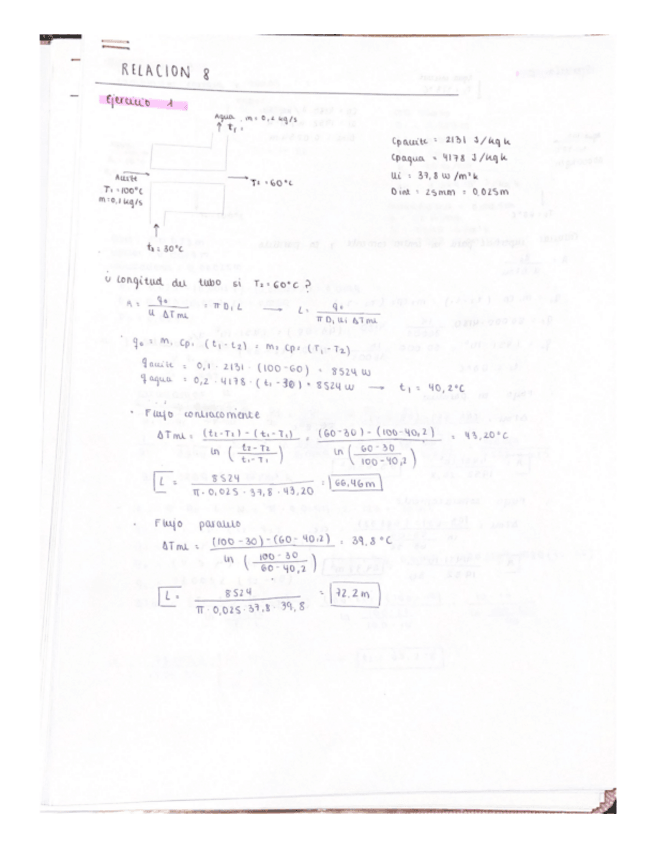 RELACION 8
Ejercicio 1
Agua, m = 0,2 kg/s
↑ t1 =
Aceite
T1 = 100°C
m = 0,1 kg/s
T2 = 60°C
t2 = 30°C
Cpaceite = 2131 J/kg k
Cpagua = 4178 J/kg k
Ui = 37,8 W/m²k
Dint = 25mm = 0,025m
¿ Longitud del tubo si T2 = 60°C ?
A = q0 / (U ΔTml) = π Di L → L = q0 / (π Di Ui ΔTml)
· q0 = m1 Cp1 (t1 - t2) = m2 Cp2 (T1 - T2)
qaceite = 0,1 · 2131 · (100-60) = 8524 W
qagua = 0,2 · 4178 · (t1 - 30) = 8524 W → t1 = 40,2°C
· Flujo contracorriente
ΔTml = ((t2-T2) - (t1-T1)) / ln((t2-T2)/(t1-T1)) = ((60-30) - (100-40,2)) / ln((60-30)/(100-40,2)) = 43,20°C
L = 8524 / (π · 0,025 · 37,8 · 43,20) = 66,46m
· Flujo paralelo
ΔTml = ((100-30) - (60-40,2)) / ln((100-30)/(60-40,2)) = 39,8°C
L = 8524 / (π · 0,025 · 37,8 · 39,8) = 72,2m